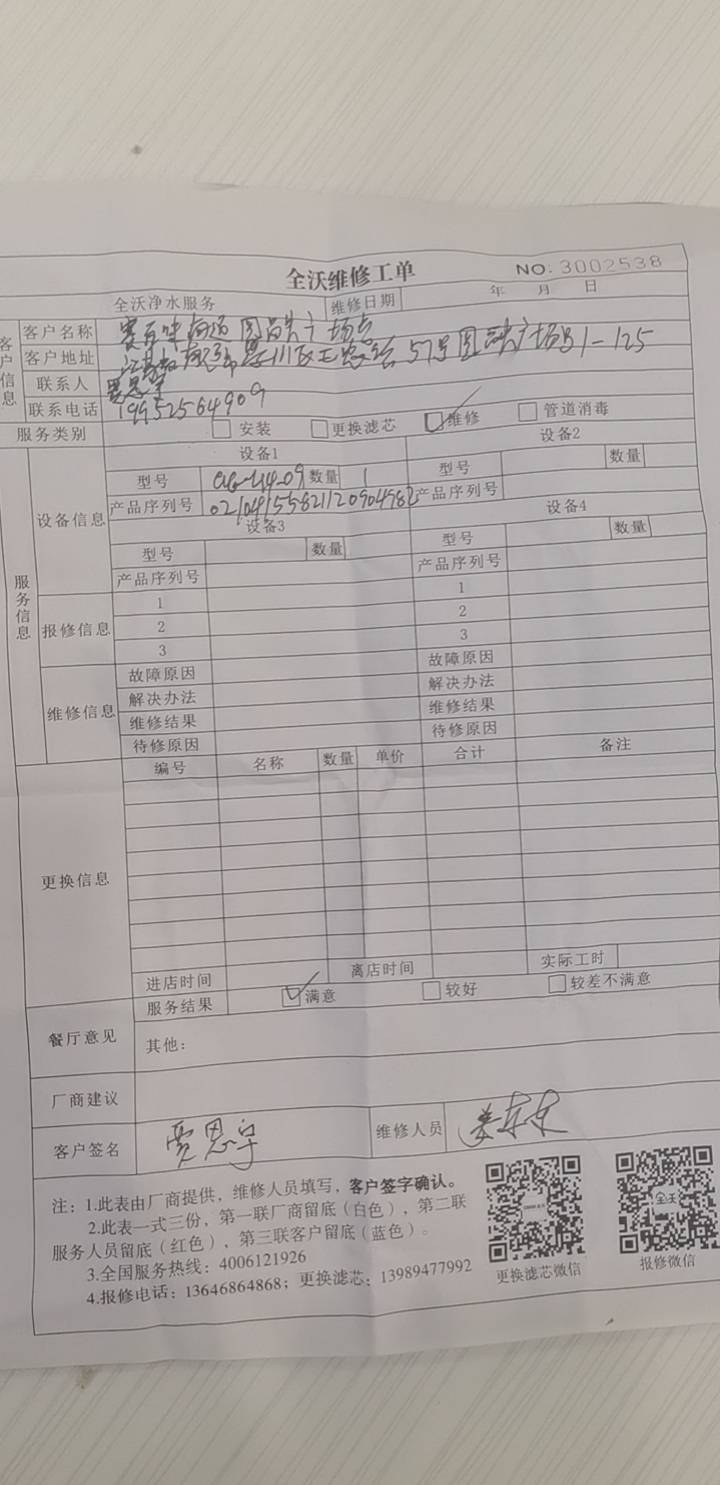 全沃维修工单
NO: 3002538
全沃净水服务 维修日期 年 月 日
客户信息
客户名称 赛百味南通圆融广场店
客户地址 江苏省南通市崇川区工农路57号圆融广场B1-125
联系人 贾思宇
联系电话 19952564909
服务类别 安装 更换滤芯 维修 管道消毒
服务信息
设备信息
设备1 设备2
型号 数量 1 型号 数量
产品序列号 产品序列号
设备3 设备4
型号 数量 型号 数量
产品序列号 产品序列号
报修信息
1 1
2 2
3 3
维修信息
故障原因 故障原因
解决办法 解决办法
维修结果 维修结果
待修原因 待修原因
更换信息
编号 名称 数量 单价 合计 备注
进店时间 离店时间 实际工时
服务结果 满意 较好 较差不满意
餐厅意见 其他:
厂商建议
客户签名 贾恩宇 维修人员 姜东东
注: 1.此表由厂商提供，维修人员填写，客户签字确认。
2.此表一式三份，第一联厂商留底（白色），第二联
服务人员留底（红色），第三联客户留底（蓝色）。
3.全国服务热线: 4006121926
4.报修电话: 13646864868; 更换滤芯: 13989477992
更换滤芯微信 报修微信
全沃